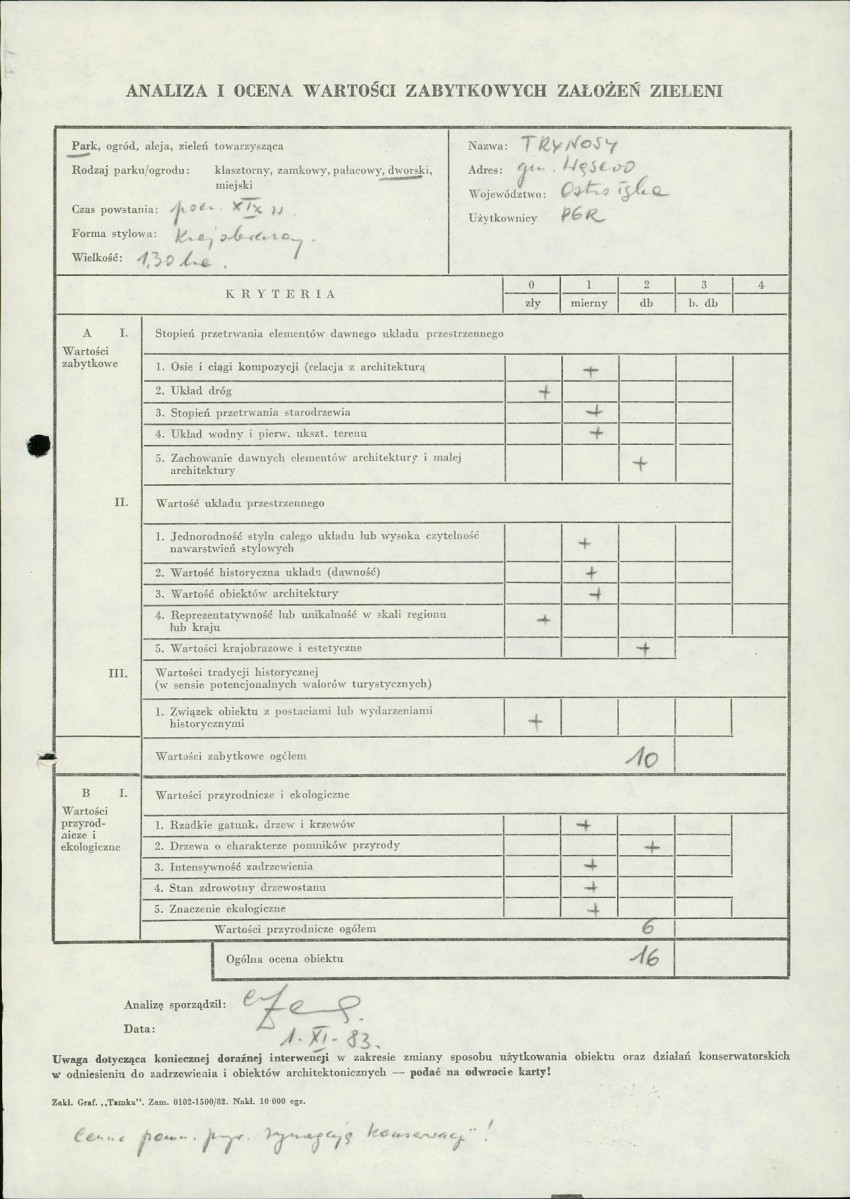 ANALIZA I OCENA WARTOŚCI ZABYTKOWYCH ZAŁOŻEŃ ZIELENI
Park, ogród, aleja, zieleń towarzysząca
Rodzaj parku/ogrodu: klasztorny, zamkowy, pałacowy, dworski,
miejski
Czas powstania: pocz. XIX w
Forma stylowa: Krajobrazowy.
Wielkość: 1,30 ha.
Nazwa: TRYNOSY
Adres: gm. Wąsewo
Województwo: Ostrołęka
Użytkownicy PGR
KRYTERIA
0 1 2 3 4
zły mierny db b. db
A I. Stopień przetrwania elementów dawnego układu przestrzennego
Wartości
zabytkowe
1. Osie i ciągi kompozycji (relacja z architekturą +
2. Układ dróg +
3. Stopień przetrwania starodrzewia +
4. Układ wodny i pierw. ukszt. terenu +
5. Zachowanie dawnych elementów architektury i małej
architektury +
II. Wartość układu przestrzennego
1. Jednorodność stylu całego układu lub wysoka czytelność
nawarstwień stylowych +
2. Wartość historyczna układu (dawność) +
3. Wartość obiektów architektury +
4. Reprezentatywność lub unikalność w skali regionu
lub kraju +
5. Wartości krajobrazowe i estetyczne +
III. Wartości tradycji historycznej
(w sensie potencjonalnych walorów turystycznych)
1. Związek obiektu z postaciami lub wydarzeniami
historycznymi +
Wartości zabytkowe ogółem 10
B I. Wartości przyrodnicze i ekologiczne
Wartości
przyrod-
nicze i
ekologiczne
1. Rzadkie gatunk. drzew i krzewów +
2. Drzewa o charakterze pomników przyrody +
3. Intensywność zadrzewienia +
4. Stan zdrowotny drzewostanu +
5. Znaczenie ekologiczne +
Wartości przyrodnicze ogółem 6
Ogólna ocena obiektu 16
Analizę sporządził:
Data: 1. XI. 83.
Uwaga dotycząca koniecznej doraźnej interwencji w zakresie zmiany sposobu użytkowania obiektu oraz działań konserwatorskich
w odniesieniu do zadrzewienia i obiektów architektonicznych — podać na odwrocie karty!
Zakł. Graf. „Tamka". Zam. 0102-1500/82. Nakł. 10 000 egz.
Cenne pomn. przyr. wymagają konserwacji!